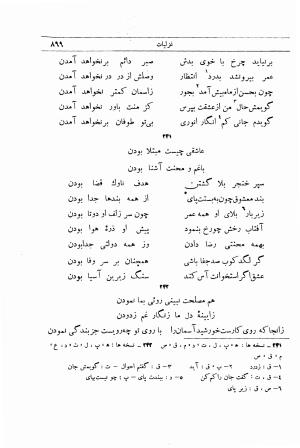 غزلیات ۸۹۹
برنیاید چرخ با خوی بدش صبر دائم برنخواهد آمدن
عمر بیرونشد بدرد انتظار وصلش از در در نخواهد آمدن
چون بحسن از مامهش آمد بجور زاسمان کمتر نخواهد آمدن
گویمش حال من از عشقت بپرس کز منت باور نخواهد آمدن
گویدم جانی کم انگار انوری بی‌تو طوفان برنخواهد آمدن
۲۴۱
عاشقی چیست مبتلا بودن
با غم و محنت آشنا بودن
سپر خنجر بلا گشتن هدف ناوک قضا بودن
بند معشوق چون به بستت پای از همه بندها جدا بودن
زیر بار بلای او همه عمر چون سر زلف او دوتا بودن
آفتاب رخش چو رخ بنمود پیش او ذرهٔ هوا بودن
بهمه محنتی رضا دادن وز همه دولتی جدا بودن
گر لگدکوب صد جفا باشی همچنان بر سر وفا بودن
عشق اگر استخوانت آس کند سنگ زیرین آسیا بودن
۲۴۲
هم مصلحت نبینی روئی بما نمودن
زایینهٔ دل ما زنگار غم زدودن
زانجا که روی کارست خورشید آسمان را با روی تو چه رویست جز بندگی نمودن